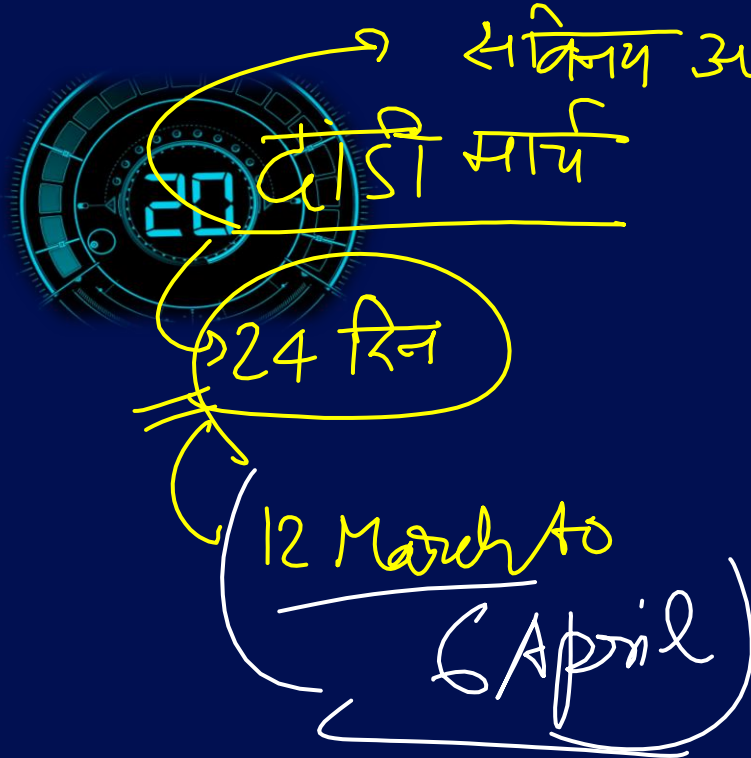 सविनय अ
दांडी मार्च
20
24 दिन
12 March to
6 April